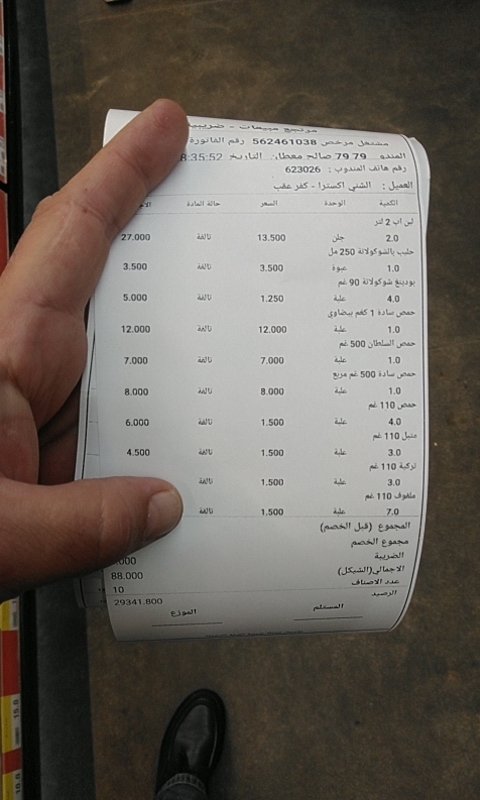 مرتجع مبيعات - ضريبية
مشتغل مرخص 562461038 رقم الفاتورة
المندو 79.79 صالح معطان التاريخ 8:35:52
رقم هاتف المندوب : 623026
العميل : الشني اكسترا - كفر عقب
الكمية الوحدة السعر حالة المادة
لبن اب 2 لتر
2.0 جلن 13.500 تالفة 27.000
حليب بالشوكولاتة 250 مل
1.0 عبوة 3.500 تالفة 3.500
بودينغ شوكولاتة 90 غم
4.0 علبة 1.250 تالفة 5.000
حمص سادة 1 كغم بيضاوي
1.0 علبة 12.000 تالفة 12.000
حمص السلطان 500 غم
1.0 علبة 7.000 تالفة 7.000
حمص سادة 500 غم مربع
1.0 علبة 8.000 تالفة 8.000
حمص 110 غم
4.0 علبة 1.500 تالفة 6.000
متبل 110 غم
3.0 علبة 1.500 تالفة 4.500
تركية 110 غم
3.0 علبة 1.500 تالفة
ملفوف 110 غم
7.0 علبة 1.500 تالفة
المجموع (قبل الخصم)
مجموع الخصم
الضريبة .000
الاجمالي(الشيكل) 88.000
عدد الاصناف 10
الرصيد 29341.800
المستلم الموزع
15.0
10.0